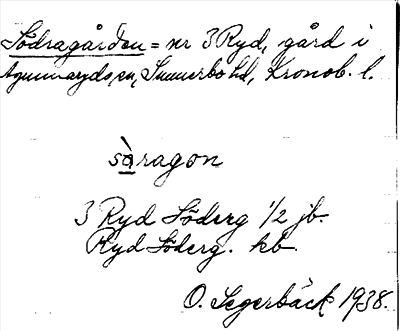 Södragården = nr 3 Ryd, gård i
Agunnaryds sn, Sunnerbo hd, Kronob. l.
sò̱ragon
3 Ryd Söderg 1/2 jb.
Ryd Söderg. kb
O. Segerbäck 1938.